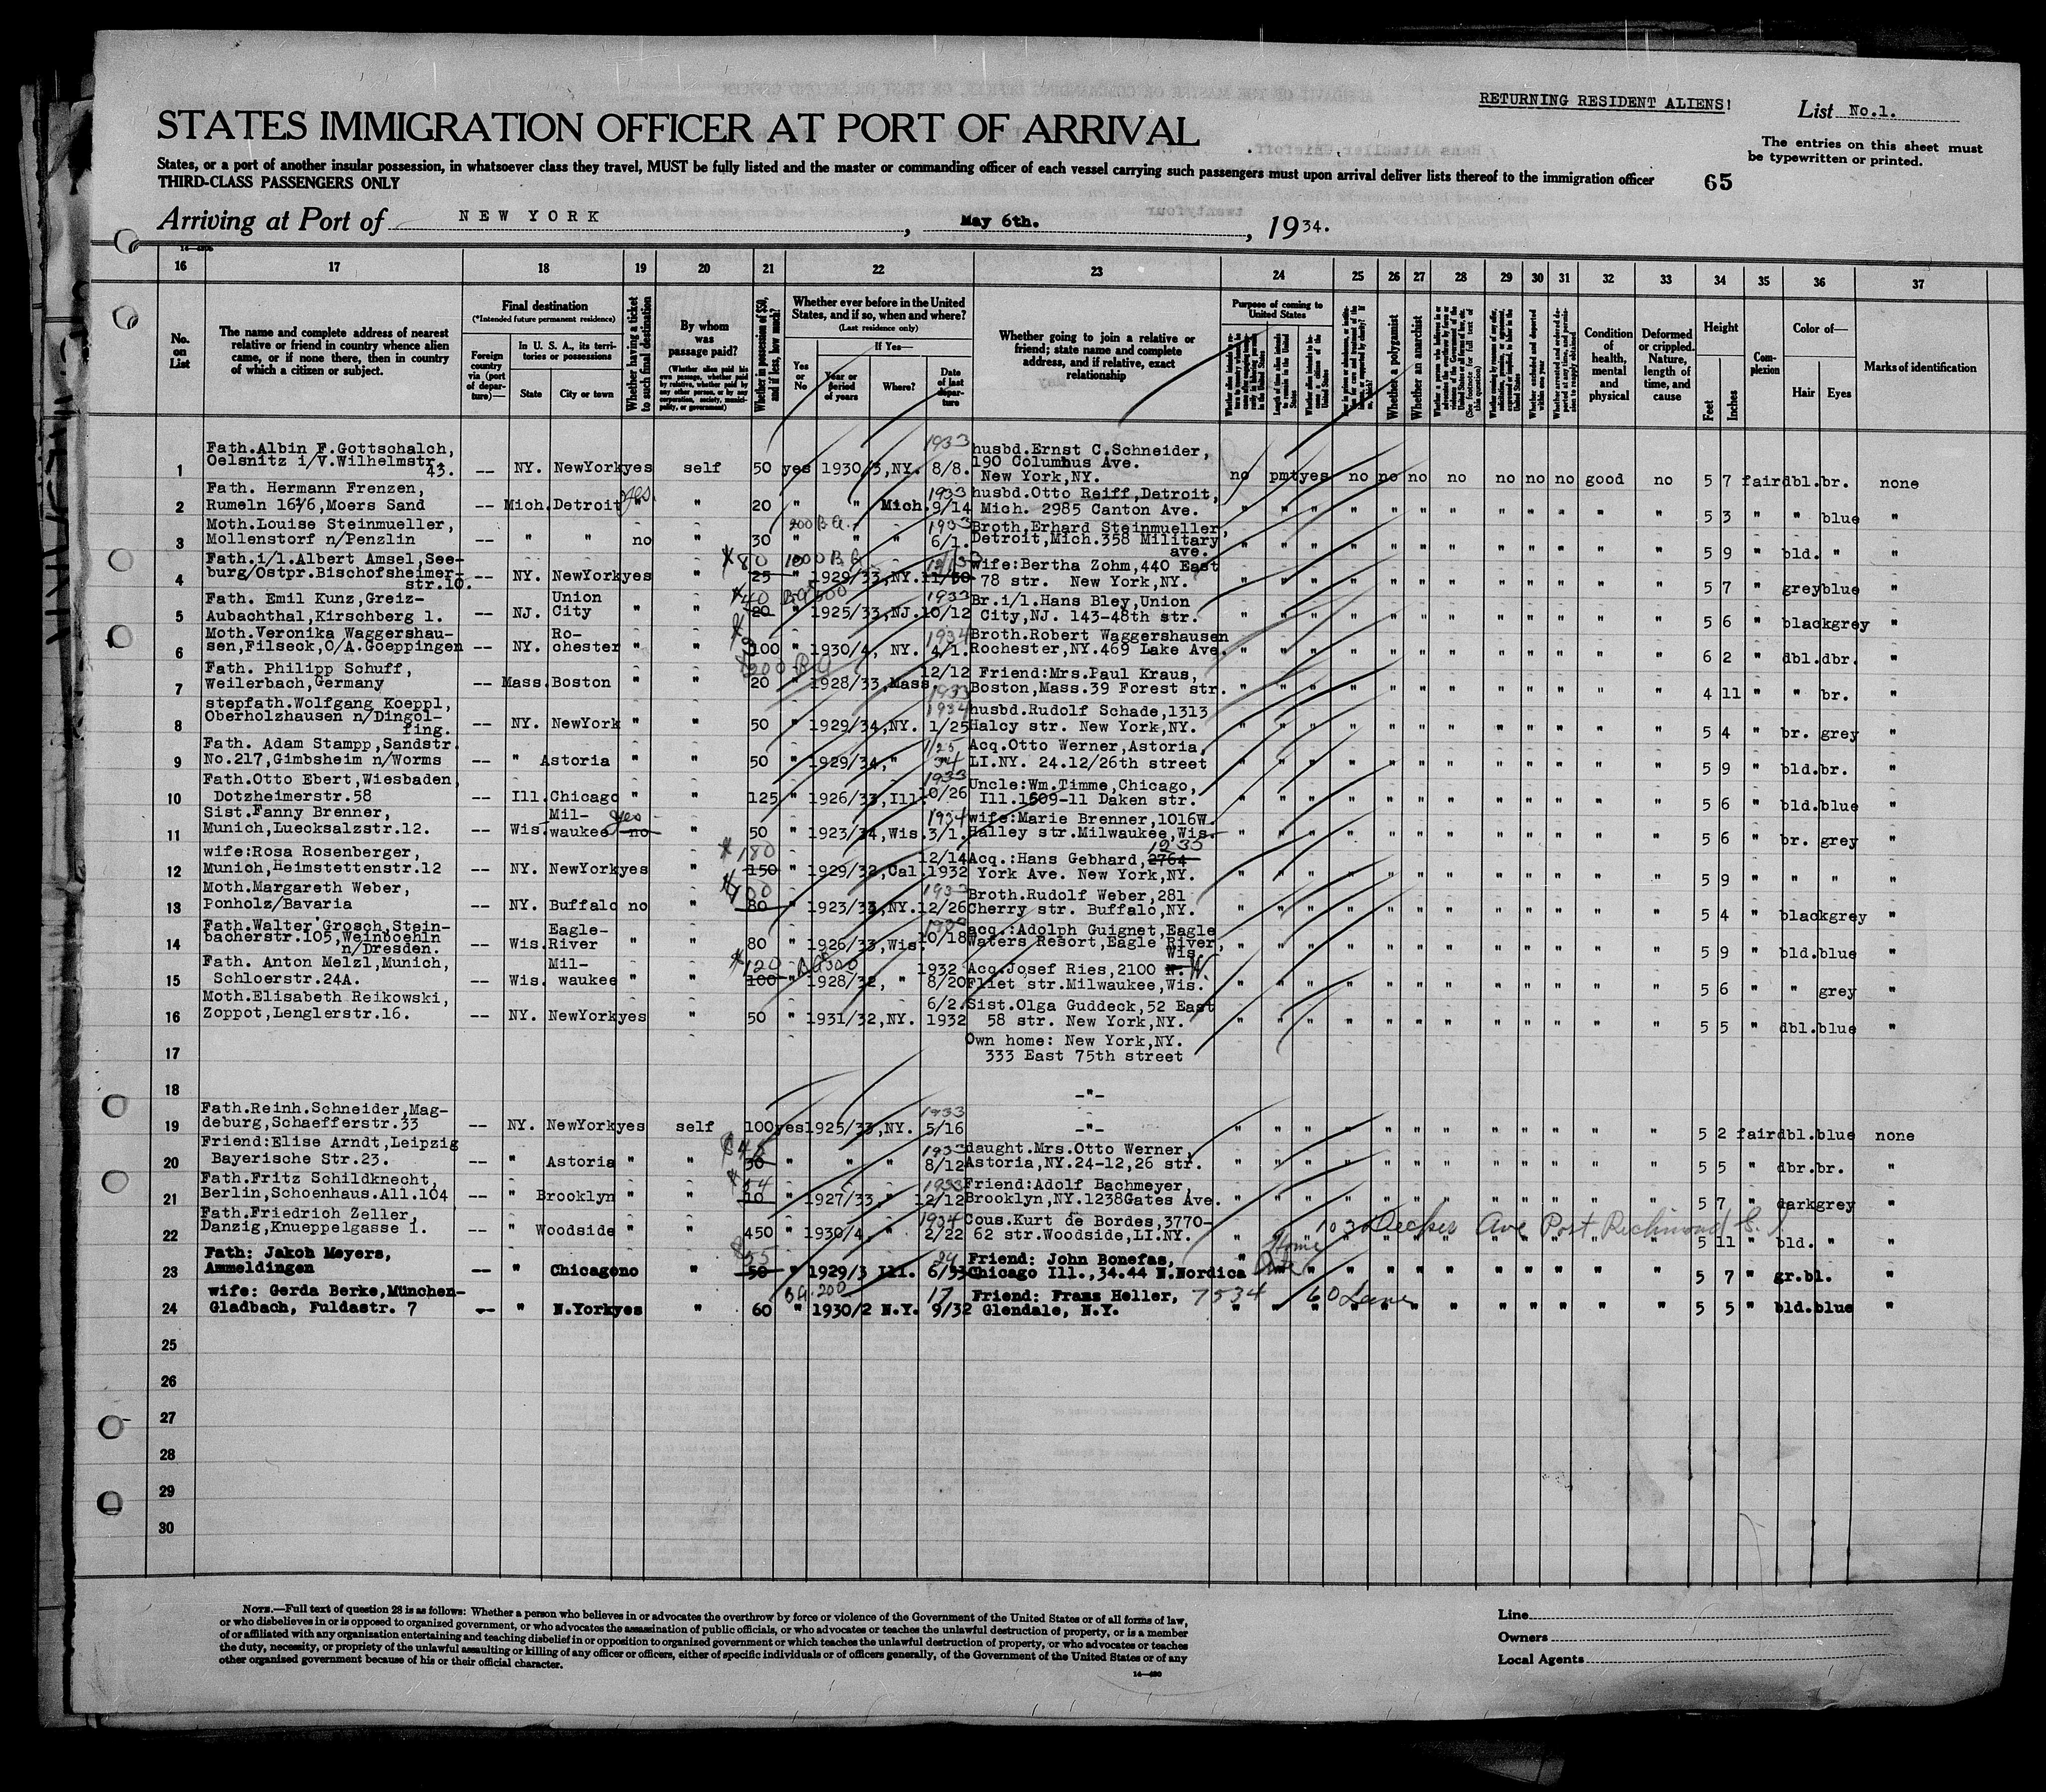 RETURNING RESIDENT ALIENS!
List No.1.
STATES IMMIGRATION OFFICER AT PORT OF ARRIVAL
The entries on this sheet must
be typewritten or printed.
States, or a port of another insular possession, in whatsoever class they travel, MUST be fully listed and the master or commanding officer of each vessel carrying such passengers must upon arrival deliver lists thereof to the immigration officer
THIRD-CLASS PASSENGERS ONLY
65
Arriving at Port of NEW YORK, May 6th., 1934.
16 17 18 19 20 21 22 23 24 25 26 27 28 29 30 31 32 33 34 35 36 37
No. on List
The name and complete address of nearest relative or friend in country whence alien came, or if none there, then in country of which a citizen or subject.
Final destination
(*Intended future permanent residence)
Foreign country via (port of departure)—
In U. S. A., its territories or possessions
State City or town
Whether having a ticket to such final destination
By whom was passage paid?
(Whether alien paid his own passage, whether paid by relative, whether paid by any other person, or by any corporation, society, municipality, or government)
Whether in possession of $50, and if less, how much?
Whether ever before in the United States, and if so, when and where?
(Last residence only)
Yes or No
If Yes—
Year or period of years
Where?
Date of last departure
Whether going to join a relative or friend; state name and complete address, and if relative, exact relationship
Purpose of coming to United States
Whether a polygamist
Whether an anarchist
Condition of health, mental and physical
Deformed or crippled. Nature, length of time, and cause
Height
Feet Inches
Complexion
Color of—
Hair Eyes
Marks of identification
1 Fath.Albin F.Gottschalch, Oelsnitz i/V.Wilhelmstr. 43. -- NY. NewYork yes self 50 yes 1930/3,NY. 1933 8/8. husbd.Ernst C.Schneider, 190 Columbus Ave. New York,NY. no pmt yes no no no no no no no good no 5 7 fair dbl. br. none
2 Fath. Hermann Frenzen, Rumeln 16, Moers Sand -- Mich. Detroit yes " " 20 " " Mich. 1933 9/14 husbd.Otto Reiff,Detroit, Mich. 2985 Canton Ave. 5 3 " " blue "
3 Moth.Louise Steinmueller, Mollenstorf n/Penzlin -- " " no " 30 200 B.A. " " " 1933 6/1. Broth.Erhard Steinmueller Detroit,Mich.358 Military ave. 5 9 " bld. " "
4 Fath.i/l.Albert Amsel,Seeburg/Ostpr.Bischofsheimerstr.10. -- NY. NewYork yes " $80 25 1000 B A " 1929/33,NY. 11/30 wife:Bertha Zohm,440 East 78 str. New York,NY. 5 7 grey blue "
5 Fath. Emil Kunz,Greiz-Aubachthal,Kirschberg 1. -- NJ. Union City " " $40 20 " 1925/33,NJ. 1933 10/12 Br.i/l.Hans Bley,Union City,NJ. 143-48th str. 5 6 " black grey "
6 Moth.Veronika Waggershausen,Filseck,O/A.Goeppingen -- NY. Rochester " " 100 " 1930/4, NY. 1934 4/1. Broth.Robert Waggershausen Rochester,NY.469 Lake Ave. 6 2 " dbl. dbr. "
7 Fath. Philipp Schuff, Weilerbach,Germany -- Mass. Boston " " 200 B A 20 " 1928/33,Mass. 12/12 1933 Friend:Mrs.Paul Kraus, Boston,Mass.39 Forest str. 4 11 " " br. "
8 stepfath.Wolfgang Koeppl, Oberholzhausen n/Dingolfing. -- NY. NewYork " " 50 " 1929/34,NY. 1934 1/25 husbd.Rudolf Schade,1313 Halcy str. New York,NY. 5 4 " br. grey "
9 Fath. Adam Stampp,Sandstr. No.217,Gimbsheim n/Worms -- " Astoria " " 50 " 1929/34, " 1/25 34 Acq.Otto Werner,Astoria, LI.NY. 24.12/26th street 5 9 " bld. br. "
10 Fath.Otto Ebert,Wiesbaden, Dotzheimerstr.58 -- Ill. Chicago " " 125 " 1926/33,Ill. 1933 10/26 Uncle:Wm.Timme,Chicago, Ill.1609-11 Daken str. 5 6 " bld. blue "
11 Sist.Fanny Brenner, Munich,Luecksalzstr.12. -- Wis. Milwaukee yes no " 50 " 1923/34,Wis. 1934 3/1. wife:Marie Brenner,1016W. Halley str.Milwaukee,Wis. 5 6 " br. grey "
12 wife:Rosa Rosenberger, Munich,Heimstettenstr.12 -- NY. NewYork yes " $180 150 " 1929/32,Cal. 12/14 1932 Acq.:Hans Gebhard, 2764 1235 York Ave. New York,NY. 5 9 " " " "
13 Moth.Margareth Weber, Ponholz/Bavaria -- NY. Buffalo no " $100 80 " 1923/33,NY. 1933 12/26 Broth.Rudolf Weber,281 Cherry str. Buffalo,NY. 5 4 " black grey "
14 Fath.Walter Grosch,Steinbacherstr.105,Weinboehln n/Dresden. -- Wis. Eagle-River " " 80 " 1926/33,Wis. 10/18 acq.:Adolph Guignet,Eagle Waters Resort,Eagle River, Wis. 5 9 " bld. blue "
15 Fath. Anton Melzl,Munich, Schloerstr.24A. -- Wis. Milwaukee " " $120 100 BA 300 " 1928/32, " 1932 8/20 Acq.Josef Ries,2100 W. Fliet str.Milwaukee,Wis. 5 6 " " grey "
16 Moth.Elisabeth Reikowski, Zoppot,Lenglerstr.16. -- NY. NewYork yes " 50 " 1931/32,NY. 6/2. 1932 Sist.Olga Guddeck,52 East 58 str. New York,NY. 5 5 " dbl. blue "
17 Own home: New York,NY. 333 East 75th street
18 -"-
19 Fath.Reinh.Schneider,Magdeburg,Schaefferstr.33 -- NY. NewYork yes self 100 yes 1925/33,NY. 1933 5/16 -"- 5 2 fair dbl. blue none
20 Friend:Elise Arndt,Leipzig Bayerische Str.23. -- " Astoria " " $45 30 " " " 1933 8/12 daught.Mrs.Otto Werner, Astoria,NY.24-12,26 str. 5 5 " dbr. br. "
21 Fath.Fritz Schildknecht, Berlin,Schoenhaus.All.104 -- " Brooklyn " " 10 " 1927/33, " 1933 12/12 Friend:Adolf Bachmeyer, Brooklyn,NY.1238Gates Ave. 5 7 " dark grey "
22 Fath.Friedrich Zeller, Danzig,Knueppelgasse 1. -- " Woodside " " 450 " 1930/4, " 1934 2/22 Cous.Kurt de Bordes,3770-62 str.Woodside,LI.NY. 1030 Decker Ave Port Richmond S.I 5 11 " bld. " "
23 Fath: Jakob Meyers, Ammeldingen -- " Chicago no " $55 50 " 1929/3 Ill. 6/33 Friend: John Bonefas, Chicago Ill.,34.44 N.Nordica 5 7 " gr. bl. "
24 wife: Gerda Berke,München-Gladbach, Fuldastr. 7 -- " N.York yes " 60 BA 200 " 1930/2 N.Y. 17 9/32 Friend: Frans Heller, 7534 60 Lane Glendale, N.Y. 5 5 " bld. blue "
25
26
27
28
29
30
NOTE.—Full text of question 28 is as follows: Whether a person who believes in or advocates the overthrow by force or violence of the Government of the United States or of all forms of law,
or who disbelieves in or is opposed to organized government, or who advocates the assassination of public officials, or who advocates or teaches the unlawful destruction of property, or is a member
of or affiliated with any organization entertaining and teaching disbelief in or opposition to organized government or which teaches the unlawful destruction of property, or who advocates or teaches
the duty, necessity, or propriety of the unlawful assaulting or killing of any officer or officers, either of specific individuals or of officers generally, of the Government of the United States or of any
other organized government because of his or their official character.
Line
Owners
Local Agents